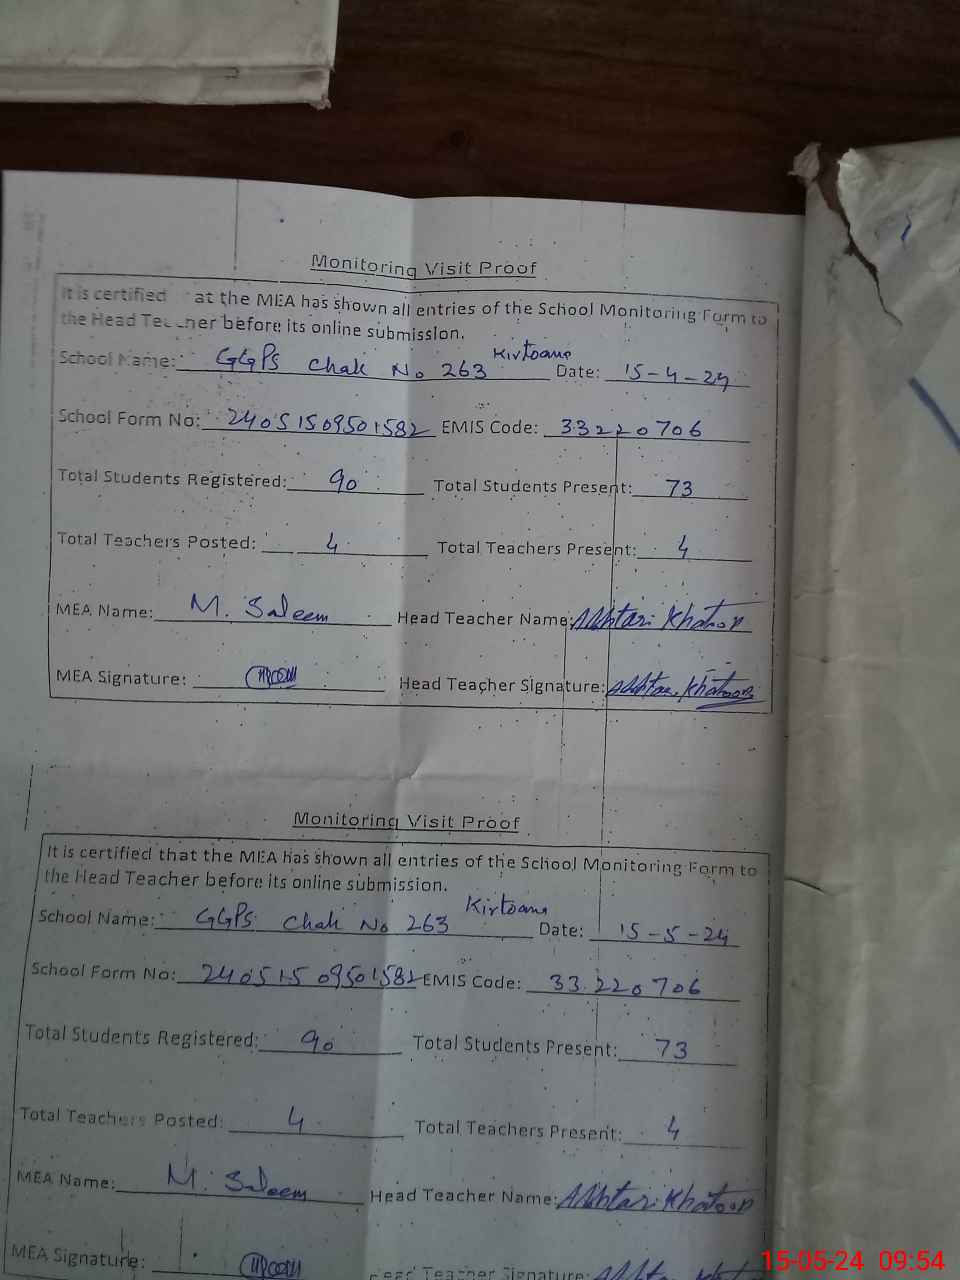 Monitoring Visit Proof
It is certified at the MEA has shown all entries of the School Monitoring Form to
the Head Teacher before its online submission.
School Name: GGPS Chak No 263 Kirtoana Date: 15-4-24
School Form No: 24051509501582 EMIS Code: 33220706
Total Students Registered: 90 Total Students Present: 73
Total Teachers Posted: 4 Total Teachers Present: 4
MEA Name: M. Saleem Head Teacher Name: Akhtari Khatoon
MEA Signature: Head Teacher Signature: Akhtari Khatoon
Monitoring Visit Proof
It is certified that the MEA has shown all entries of the School Monitoring Form to
the Head Teacher before its online submission.
School Name: GGPS Chak No 263 Kirtoana Date: 15-5-24
School Form No: 24051509501582 EMIS Code: 33220706
Total Students Registered: 90 Total Students Present: 73
Total Teachers Posted: 4 Total Teachers Present: 4
MEA Name: M. Saleem Head Teacher Name: Akhtari Khatoon
MEA Signature: Head Teacher Signature:
15-05-24 09:54